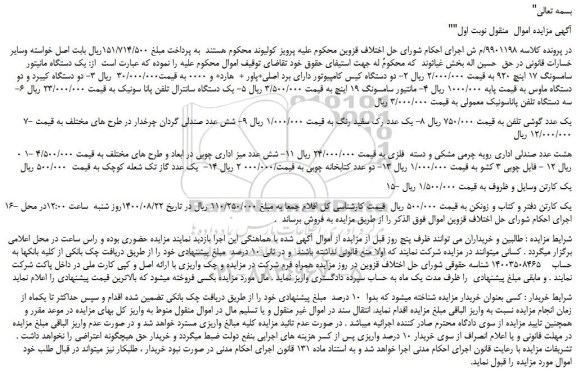 بسمه تعالی"
آگهی مزایده اموال منقول نوبت اول""
در پرونده کلاسه ۹۹۰۱۱۹۸/م ش اجرای احکام شورای حل اختلاف قزوین محکوم علیه پرویز کولیوند محکوم هستند به پرداخت مبلغ ۱۵۱/۷۱۴/۵۰۰ریال بابت اصل خواسته وسایر
خسارات قانونی در حق حسین اله بخش غیاثوند که محکومٌ له جهت استیفای حقوق خود تقاضای توقیف اموال محکوم علیه را نموده که عبارت است از: یک دستگاه مانیتور
سامسونگ ۱۷ اینچ ۹۲۰ به قیمت ۲/۰۰۰/۰۰۰ ریال ۲- دو دستگاه کیس کامپیوتور دارای برد اصلی+پاور + هارد+ و ۰۰۰۰ به قیمت۳۰/۰۰۰/۰۰۰ ریال ۳- دو دستگاه کیبرد و دو
دستگاه ماوس به قیمت پایه ۱۰۰۰/۰۰۰ ریال ۴- مانیتور سامسونگ ۱۹ اینچ به قیمت ۳/۵۰۰/۰۰۰ ریال ۵- یک دستگاه سانترال تلفن پانا سونیک به قیمت ۲۳/۰۰۰/۰۰۰ ریال ۶-
سه دستگاه تلفن پاناسونیک معمولی به قیمت ۳/۰۰۰/۰۰۰ ریال
یک عدد گوشی تلفن به قیمت ۷۵۰/۰۰۰ ریال ۸- یک عدد رک سفید رنگ به قیمت ۱/۰۰۰/۰۰۰ ریال ۹- شش عدد صندلی گردان چرخدار در طرح های مختلف به قیمت ۷-
۱۲/۰۰۰/۰۰۰ ریال
هشت عدد صندلی اداری رویه چرمی مشکی و دسته فلزی به قیمت ۲۴/۰۰۰/۰۰۰ ریال ۱۱- شش عدد میز اداری چوبی در ابعاد و طرح های مختلف به قیمت ۴/۵۰۰/۰۰۰ ۱۰-
ریال ۱۲ - فایل چوبی ۳ کشو به قیمت ۱/۰۰۰/۰۰۰ ریال ۱۳- دو عدد کتابخانه چوبی به قیمت۲ ۰۰۰/۰۰۰ ریال ۱۴- یک عدد گاز تک شعله کوچک به قیمت ۵۰۰/۰۰۰ ریال
یک کارتن وسایل و ظروف به قیمت ۱/۵۰۰/۰۰۰ ریال ۱۵-
یک کارتن دفتر و کتاب و زونکن به قیمت ۵۰۰/۰۰۰ ریال قیمت کارشناسی کل اقلام جمعا به مبلغ ۱۱۰/۲۵۰/۰۰۰ ریال در تاریخ ۱۴۰۰/۰۸/۲۲روز شنبه ساعت ۱۲:۰۰در محل ۱۶-
اجرای احکام شورای حل اختلاف قزوین اموال فوق الذکر را از طریق مزایده به فروش برساند .
شرایط مزایده : طالبین و خریداران می توانند ظرف پنج روز قبل از مزایده از اموال آگهی شده با هماهنگی این اجرا بازدید نمایند مزایده حضوری بوده و راس ساعت در محل اعلامی
برگزار میگردد . کسانی میتوانند در مزایده شرکت نمایند که اولا منع قانونی نداشته باشند . و در ثانی ۱۰ درصد مبلغ پیشنهادی خود را از طریق دریافت چک بانکی از کلیه بانکها به
حساب ۱۴۰۰۳۵۰۸۴۶۵ شناسه حقوقی شورای حل اختلاف قزوین در روز مزایده همراه فرم شرکت در مزایده و چک واریزی با ارائه اصل و کپی کارت ملی در داخل پاکت شرکت
نمایند . و مابقی مبلغ پیشنهادی را ظرف مدت یک ماه به حساب سپرده دادگستری واریز نماید . مال مورد مزایده بکسی فروخته میشود که بالاترین قیمت پیشنهادی را اعلام نماید
شرایط خریدار : کسی بعنوان خریدار مزایده شناخته میشود که بدوا ۱۰ درصد مبلغ پیشنهادی خود را از طریق دریافت چک بانکی تضمین شده اقدام و سپس حداکثر تا یکماه از
زمان انجام مزایده نسبت به واریز الباقی مبلغ مزایده اقدام نماید. انتقال سند در اموال غیر منقول و یا تسلیم مال در اموال منقول منوط به واریز کل بهای مزایده در موعد مقرر و
همچنین تایید مزایده از سوی دادگاه محترم صادر کننده اجرائیه میباشد . در صورت عدم تائید مزایده کلیه مبالغ واریزی مسترد خواهد شد و در صورت عدم واریز الباقی مبلغ مزایده
در مهلت قانونی و یا اعلام انصراف از سوی خریدار ۱۰ درصد واریزی پس از کسر هزینه های اجرایی بنفع دولت ضبط میگردد و خریدار حق هیچگونه اعتراضی را نخواهد داشت .
تشریفات مزایده با رعایت قانون اجرای احکام مدنی اجرا خواهد شد و به استناد ماده ۱۳۱ قانون اجرای احکام مدنی در صورت نبود خریدار ، طلبکار نیز میتواند در قبال طلب خود
اموال مورد مزایده را قبول نماید.